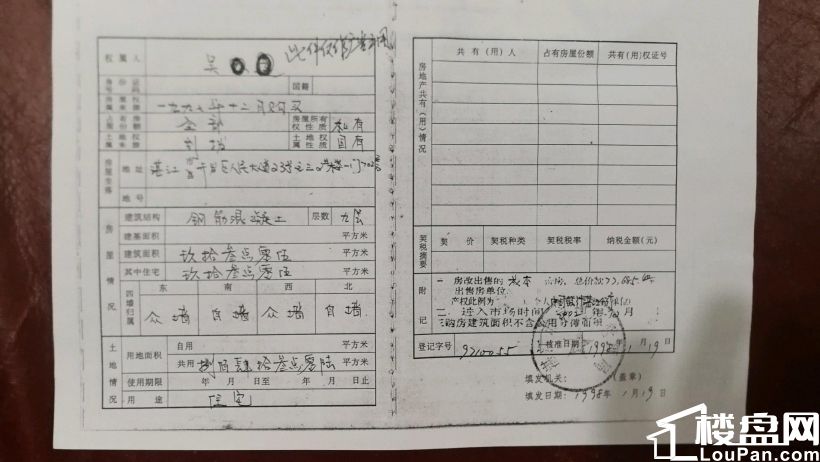 此件仅作
权属人 吴
身份证号码 国籍
房屋权属来源 一九九七年十二月购买
占有房屋份额 全部 房屋所有权性质 私有
土地权属来源 划拨 土地权属性质 国有
房屋坐落 地址 湛江市
地号
房屋情况
建筑结构 钢筋混凝土 层数 九层
建基面积 平方米
建筑面积 玖拾叁点零伍 平方米
其中住宅 玖拾叁点零伍 平方米
四墙归属 东 南 西 北
众墙 自墙 众墙 自墙
土地情况
用地面积 自用 平方米
共用 捌佰肆拾叁点零陆 平方米
使用期限 年 月 日至 年 月 日止
用途 住宅
房地产共有(用)情况
共有(用)人 占有房屋份额 共有(用)权证号
契税摘要
契价 契税种类 契税税率 纳税金额(元)
附记
一 房改出售的成本
出售房单位:
产权比例为:
二 进入市场时间 2002年 月
购房建筑面积不含公用分摊面积
登记字号 9710055 核准日期: 1998年1月19日
填发机关: (盖章)
填发日期: 1998年1月19日
楼盘网
LouPan.com